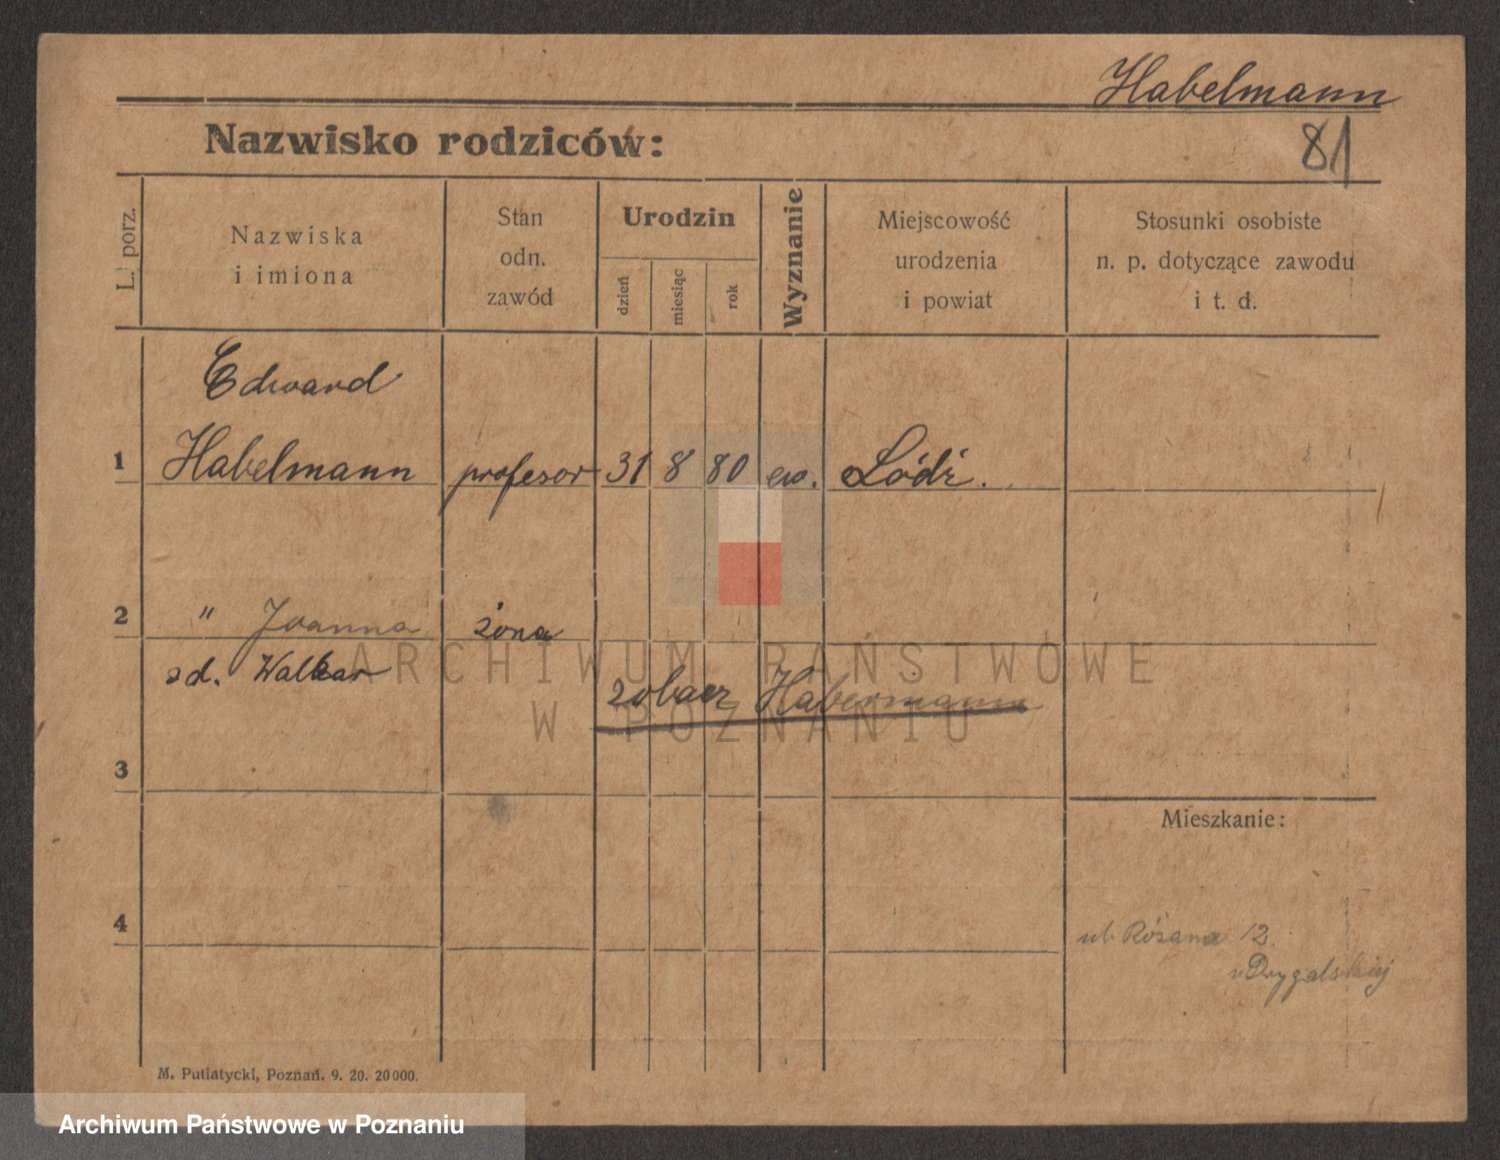 Habelmann
81
Nazwisko rodziców:
L. porz.
Nazwiska
i imiona
Stan
odn.
zawód
Urodzin
dzień
miesiąc
rok
Wyznanie
Miejscowość
urodzenia
i powiat
Stosunki osobiste
n. p. dotyczące zawodu
i t. d.
Edward
1 Habelmann profesor 31 8 80 ew. Łódź.
2 " Joanna żona
zd. Walkar
zobacz Habermann
3
Mieszkanie:
4
ul. Różana 12.
u Drygalskiej
M. Putiatycki, Poznań. 9. 20. 20000.
ARCHIWUM PAŃSTWOWE
W POZNANIU
Archiwum Państwowe w Poznaniu